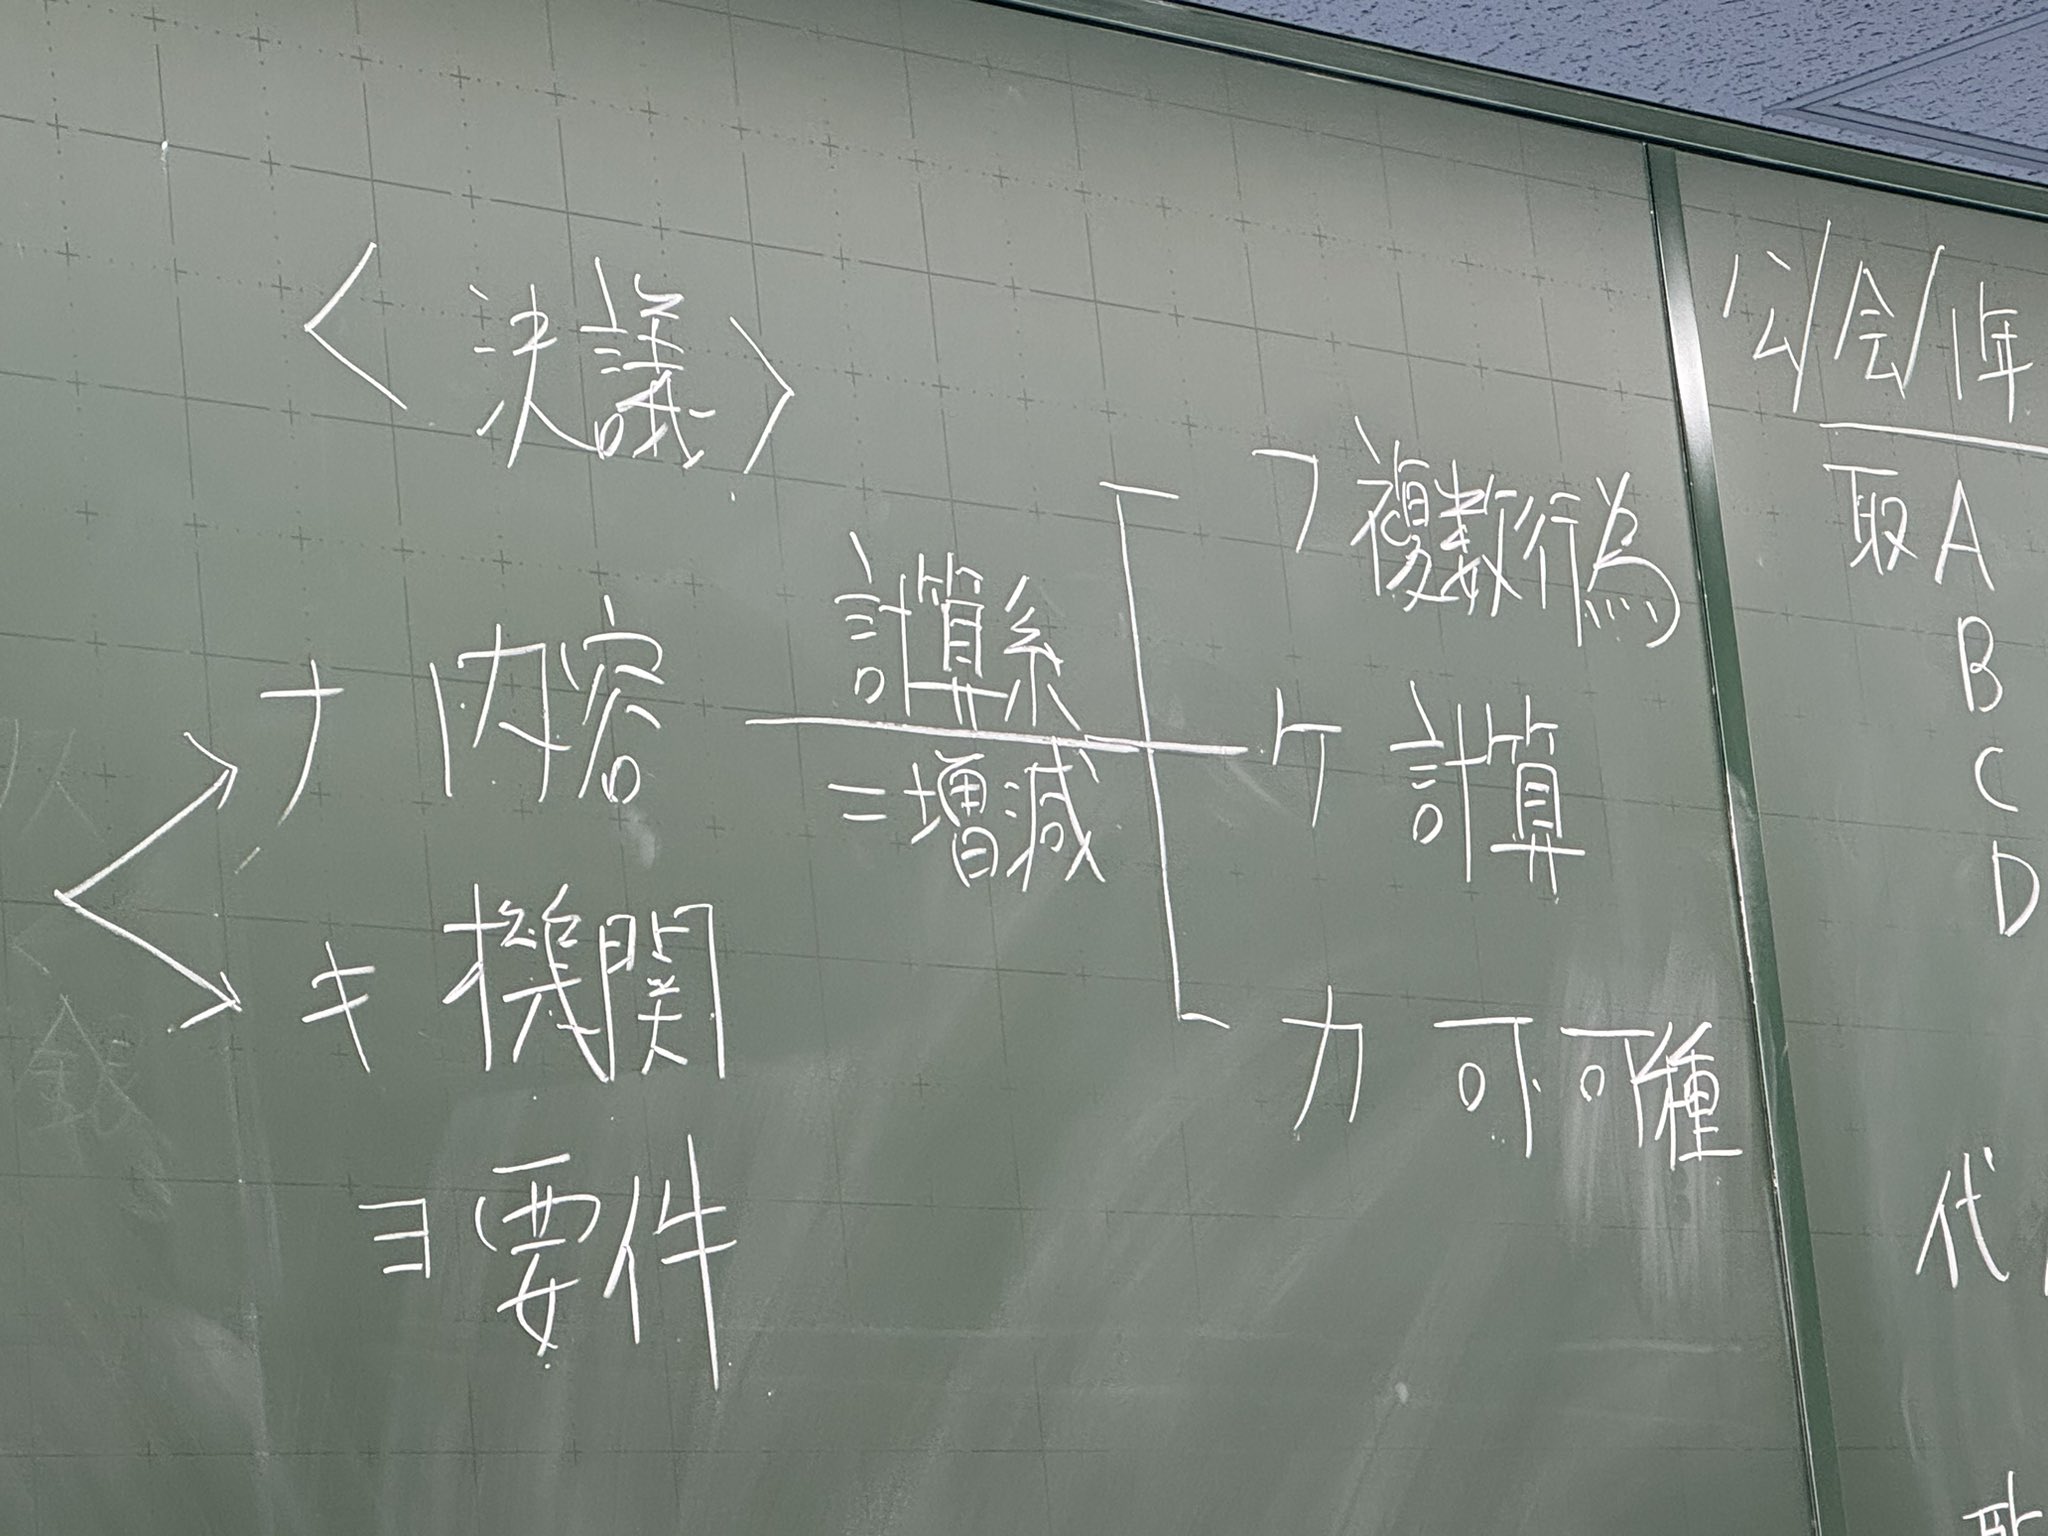 〈決議〉
ナ 内容
計算系
=増減
フ 複数行為
ケ 計算
カ 可可種
キ 機関
ヨ 要件
公/会/1年
取 A
B
C
D
代
取